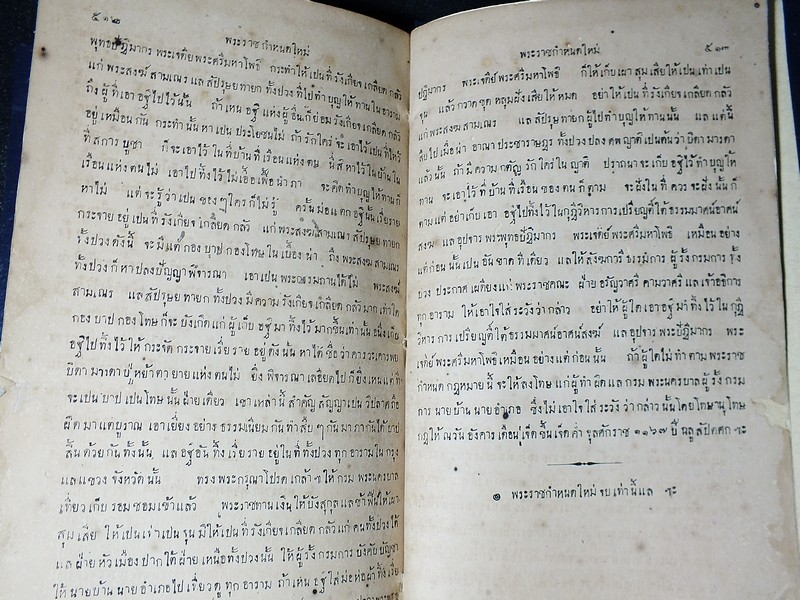 ๕๑๒
พระราชกำหนดใหม่
พุทธปัฏิมากร พระเจดียพระศรีมหาโพธิ กระทำให้เปนที่รังเกียจเกลียดกลัว
แก่พระสงฆสามเณรแลสัปรุษทายกทั้งปวงที่ไปทำบุญให้ทานในอาราม
ถึงผู้ที่เอาอฐิไปไว้นั้น ถ้าเหนอฐิแห่งผู้อื่นก็ย่อมรังเกียจเกลียดกลัว
อยู่เหมือนกัน กระทำนั้นหาเปนประโยชนไม่ ถ้ารักใคร่จะเอาไว้เปนที่ไหว้
ที่สการบูชา ก็จะเอาไว้ในที่บ้านที่เรือนแห่งตน นี่สิหาไว้ในบ้านใน
เรือนแห่งตนไม่ เอาไปทิ้งไว้ไม่เอื้อเฟื้อนำภา จะคิดทำบุญให้ทานก็
หาไม่ แต่จะรู้ว่าเปนของๆใครก็ไม่รู้ ครั้นม่อแตกอฐินั้นเรี่ยราย
กระจายอยู่เปนที่รังเกียจเกลียดกลัว แก่พระสงฆสามเณรสัปรุษทายก
ทั้งปวงดังนี้ จะมีแต่กองบาปกองโทษในเบื้องน่า ถึงพระสงฆสามเณร
ทั้งปวงก็หาปลงปัญญาพิจารณา เอาเปนพระกรรมถานได้ไม่ พระสงฆ
สามเณร แลสัปรุษทายกทั้งปวงมีความรังเกียจเกลียดกลัวมากเท่าใด
กองบาปกองโทษก็จะบังเกิดแก่ผู้เก็บอฐิมาทิ้งไว้มากขึ้นเท่านั้น อนึ่งเก็บ
อฐิไปทิ้งไว้ให้กระจัดกระจายเรี่ยรายอยู่ดังนั้น หาได้ชื่อว่าคารวะเคารพย
บิดามารดาปู่หญ้าตายายแห่งตนไม่ ยิ่งพิจารณาเลอียดไปก็ยิ่งเหนแต่ที่
จะเปนบาปเปนโทษนั้นฝ่ายเดียว เอาเหล่านี้สำคัญสัญญาเปนวิปลาดถือ
ผิดมาแต่บูราณ เอาเยี่ยงอย่างธรรมเนียมกันทำสืบๆกันมาภากันได้บาป
สิ้นด้วยกันทั้งนั้น แลอัฐิอันทิ้งเรี่ยรายอยู่ในที่ทั้งปวงทุกอารามในกรุง
แลแขวงจังหวัดนั้น ทรงพระกรุณาโปรดเกล้าฯให้กรมพระนครบาล
เที่ยวเก็บรอมซอมเข้าแล้ว พระราชทานเงินให้บังสุกุลแลซ้าฟืนให้เผา
สุมเสีย ให้เปนเท่าเปนจุน มิให้เปนที่รังเกียจเกลียดกลัวแก่คนทั้งปวงได้
แลฝ่ายหัวเมืองปากใต้ฝ่ายเหนือทั้งปวงนั้น ให้ผู้รั้งกรมการบังคับบัญชา
ให้นายบ้านนายอำเภอไปเที่ยวดูทุกอาราม ถ้าเหนอฐิใส่ม่อห่อผ้าทิ้งเรี่ย
พระราชกำหนดใหม่
๕๑๓
ปฏิมากร พระเจดีย์พระศรีมหาโพธิ ก็ให้เก็บเผาสุมเสียให้เปนเท่าเปน
จุน แล้วกวาดขุดหลุมฝังเสียให้หมด อย่าให้เปนที่รังเกียจเกลียดกลัว
แก่พระสงฆสามเณร แลสัปรุษทายกผู้ไปทำบุญให้ทานนั้น แลแต่นี้
สืบไปเมื่อน่า อาณาประชาราษฎรทั้งปวงปลงศพญาติเปนต้นว่าบิดามารดา
แล้วนั้น ถ้ามีความกตัญรักใคร่ในญาติ ปราถนาจะเก็บอฐิไว้ทำบุญให้
ทาน จะเอาไว้ที่บ้านที่เรือนของตนก็ตาม จะฝังในที่ควรจะฝังนั้นก็
ตาม แต่อย่าเก็บเอาอฐิไปทิ้งไว้ในกุฎีวิหารการเปรียญใต้ธรรมมาศน์อาศน์
สงฆ แลอุปจารพระพุทธปฏิมากร พระเจดีย์พระศรีมหาโพธิ เหมือนอย่าง
แต่ก่อนนั้นเปนอันขาดทีเดียว แลให้สังฆการีธรรมการผู้รั้งกรมการทั้ง
ปวง ประกาศเผดียงแก่พระราชคณะ ฝ่ายอรัญวาศรีคามวาศรีแลเจ้าอธิการ
ทุกอาราม ให้เอาใจใส่ระวังว่ากล่าว อย่าให้ผู้ใดเอาอฐิมาทิ้งไว้ในกุฎี
วิหารการเปรียญที่ใต้ธรรมมาศน์อาศน์สงฆ์ แลอุปจารพระปัฏิมากร พระ
เจดีย์พระศรีมหาโพธิเหมือนอย่างแต่ก่อนนั้น ถ้าผู้ใดไม่ทำตามพระราช
กำหนดกฎหมายนี้จะให้ลงโทษแก่ผู้ทำผิดแลกรมพระนครบาลผู้รั้งกรม
การนายบ้านนายอำเภอ ซึ่งไม่เอาใจใส่ระวังว่ากล่าวนั้นโดยโทษานุโทษ
กฎให้ณวันอังคารเดือนเจ็ดขึ้นเจ็ดค่ำจุลศักราช ๑๑๖๗ ปีฉลูสัปตศก ฯะ
๏ พระราชกำหนดใหม่จบเท่านี้แล ฯะ